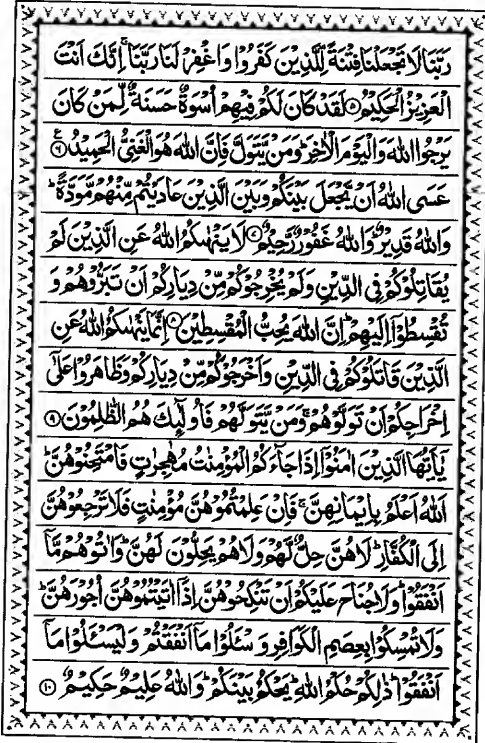 رَبَّنَا لَا تَجْعَلْنَا فِتْنَةً لِّلَّذِيْنَ كَفَرُوْا وَاغْفِرْ لَنَا رَبَّنَا ۚ اِنَّكَ اَنْتَ
الْعَزِيْزُ الْحَكِيْمُ ۝۵ لَقَدْ كَانَ لَكُمْ فِيْهِمْ اُسْوَةٌ حَسَنَةٌ لِّمَنْ كَانَ
يَرْجُوا اللّٰهَ وَالْيَوْمَ الْاٰخِرَ ؕ وَمَنْ يَّتَوَلَّ فَاِنَّ اللّٰهَ هُوَ الْغَنِيُّ الْحَمِيْدُ ۝۶ ع
عَسَى اللّٰهُ اَنْ يَّجْعَلَ بَيْنَكُمْ وَبَيْنَ الَّذِيْنَ عَادَيْتُمْ مِّنْهُمْ مَّوَدَّةً ؕ
وَاللّٰهُ قَدِيْرٌ ؕ وَاللّٰهُ غَفُوْرٌ رَّحِيْمٌ ۝۷ لَا يَنْهٰىكُمُ اللّٰهُ عَنِ الَّذِيْنَ لَمْ
يُقَاتِلُوْكُمْ فِي الدِّيْنِ وَلَمْ يُخْرِجُوْكُمْ مِّنْ دِيَارِكُمْ اَنْ تَبَرُّوْهُمْ وَ
تُقْسِطُوْۤا اِلَيْهِمْ ؕ اِنَّ اللّٰهَ يُحِبُّ الْمُقْسِطِيْنَ ۝۸ اِنَّمَا يَنْهٰىكُمُ اللّٰهُ عَنِ
الَّذِيْنَ قَاتَلُوْكُمْ فِي الدِّيْنِ وَاَخْرَجُوْكُمْ مِّنْ دِيَارِكُمْ وَظَاهَرُوْا عَلٰۤى
اِخْرَاجِكُمْ اَنْ تَوَلَّوْهُمْ ۚ وَمَنْ يَّتَوَلَّهُمْ فَاُولٰٓئِكَ هُمُ الظّٰلِمُوْنَ ۝۹
يٰۤاَيُّهَا الَّذِيْنَ اٰمَنُوْۤا اِذَا جَآءَكُمُ الْمُؤْمِنٰتُ مُهٰجِرٰتٍ فَامْتَحِنُوْهُنَّ ؕ
اَللّٰهُ اَعْلَمُ بِاِيْمَانِهِنَّ ۚ فَاِنْ عَلِمْتُمُوْهُنَّ مُؤْمِنٰتٍ فَلَا تَرْجِعُوْهُنَّ
اِلَى الْكُفَّارِ ؕ لَا هُنَّ حِلٌّ لَّهُمْ وَلَا هُمْ يَحِلُّوْنَ لَهُنَّ ؕ وَاٰتُوْهُمْ مَّاۤ
اَنْفَقُوْا ؕ وَلَا جُنَاحَ عَلَيْكُمْ اَنْ تَنْكِحُوْهُنَّ اِذَاۤ اٰتَيْتُمُوْهُنَّ اُجُوْرَهُنَّ ؕ
وَلَا تُمْسِكُوْا بِعِصَمِ الْكَوَافِرِ وَسْـَٔلُوْا مَاۤ اَنْفَقْتُمْ وَلْيَسْـَٔلُوْا مَاۤ
اَنْفَقُوْا ؕ ذٰلِكُمْ حُكْمُ اللّٰهِ ؕ يَحْكُمُ بَيْنَكُمْ ؕ وَاللّٰهُ عَلِيْمٌ حَكِيْمٌ ۝۱۰